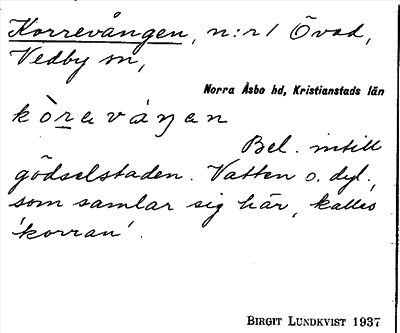 Korrevången, n:r 1 Övad,
Vedby sn,
Norra Åsbo hd, Kristianstads län
kòreváŋen
Bel. intill
gödselstaden. Vatten o. dyl.,
som samlar sig här, kallas
'korran'.
BIRGIT LUNDKVIST 1937